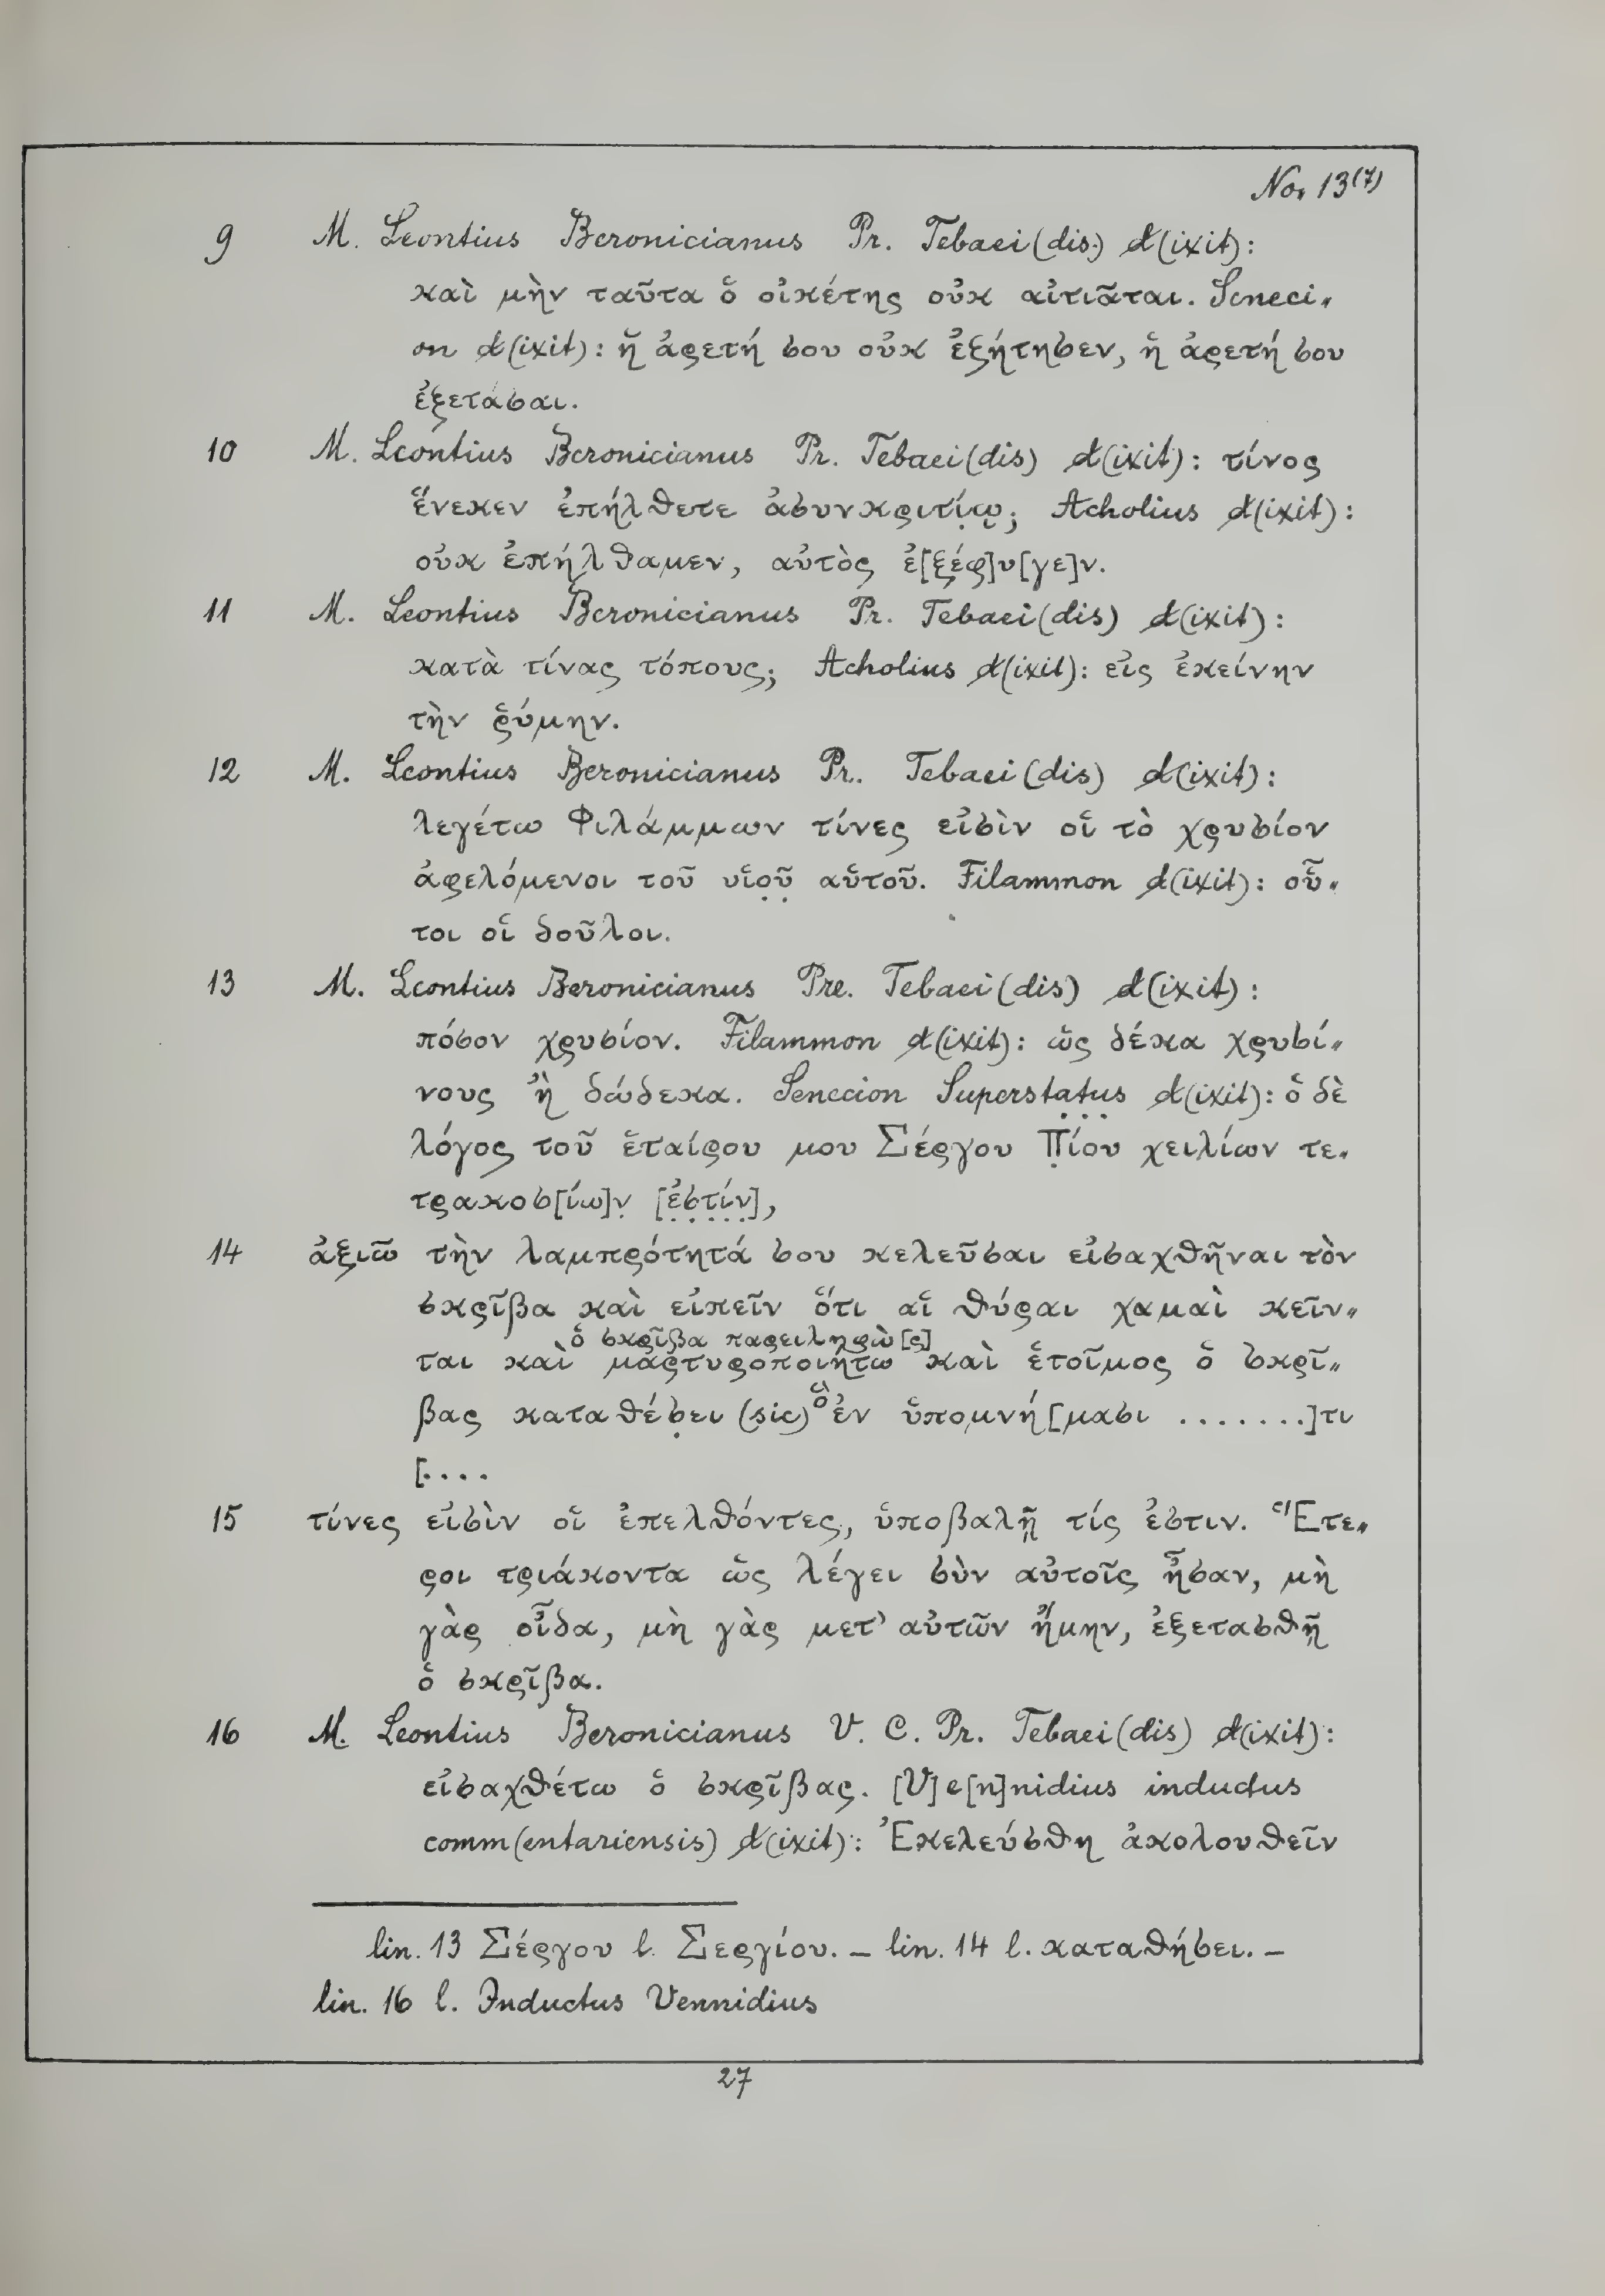 No. 13(7)
9 M. Leontius Beronicianus Pr. Tebaei(dis) d(ixit):
καὶ μὴν ταῦτα ὁ οἰκέτης οὐκ αἰτιᾶται. Seneci„
on d(ixit): ἡ ἀρετή σου οὐκ ἐξήτησεν, ἡ ἀρετή σου
ἐξετάσαι.
10 M. Leontius Beronicianus Pr. Tebaei(dis) d(ixit): τίνος
ἕνεκεν ἐπήλθετε ἀσυνκριτίῳ; Acholius d(ixit):
οὐκ ἐπήλθαμεν, αὐτὸς ἐ[ξέφ]υ[γε]ν.
11 M. Leontius Beronicianus Pr. Tebaei(dis) d(ixit):
κατὰ τίνας τόπους; Acholius d(ixit): εἰς ἐκείνην
τὴν ῥύμην.
12 M. Leontius Beronicianus Pr. Tebaei(dis) d(ixit):
λεγέτω Φιλάμμων τίνες εἰσὶν οἱ τὸ χρυσίον
ἀφελόμενοι τοῦ υἱοῦ αὑτοῦ. Filammon d(ixit): οὗ„
τοι οἱ δοῦλοι.
13 M. Leontius Beronicianus Pre. Tebaei(dis) d(ixit):
πόσον χρυσίον. Filammon d(ixit): ὡς δέκα χρυσί„
νους ἢ δώδεκα. Senecion Superstatus d(ixit): ὁ δὲ
λόγος τοῦ ἑταίρου μου Σέργου Πίου χειλίων τε„
τρακοσ[ίω]ν [ἐστίν],
14 ἀξιῶ τὴν λαμπρότητά σου κελεῦσαι εἰσαχθῆναι τὸν
σκρῖβα καὶ εἰπεῖν ὅτι αἱ θύραι χαμαὶ κεῖν„
ὁ σκρῖβα παρειληφὼ[ς]
ται καὶ μαρτυροποιήτω καὶ ἑτοῖμος ὁ σκρῖ„
βας καταθέσει (sic) ὃ ἐν ὑπομνή[μασι .......]τι
[....
15 τίνες εἰσὶν οἱ ἐπελθόντες, ὑποβαλῇ τίς ἐστιν. Ἕτε„
ροι τριάκοντα ὡς λέγει σὺν αὐτοῖς ἦσαν, μὴ
γὰρ οἶδα, μὴ γὰρ μετ’ αὐτῶν ἤμην, ἐξετασθῇ
ὁ σκρῖβα.
16 M. Leontius Beronicianus V. C. Pr. Tebaei(dis) d(ixit):
εἰσαχθέτω ὁ σκρῖβας. [V]e[n]nidius inductus
comm(entariensis) d(ixit): Ἐκελεύσθη ἀκολουθεῖν
lin. 13 Σέργου l. Σεργίου. – lin. 14 l. καταθήσει. –
lin. 16 l. Inductus Vennidius
27